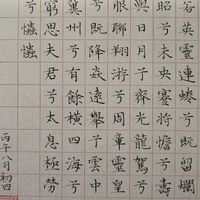 若英靈連蜷兮既留爛
兮未央謇將憺兮壽
與日月兮齊光龍駕兮
聊翱遊兮周章靈皇
兮既降猋遠舉兮雲中
冀州兮有餘橫四海兮
窮思夫君兮太息極勞
丙午八月初四